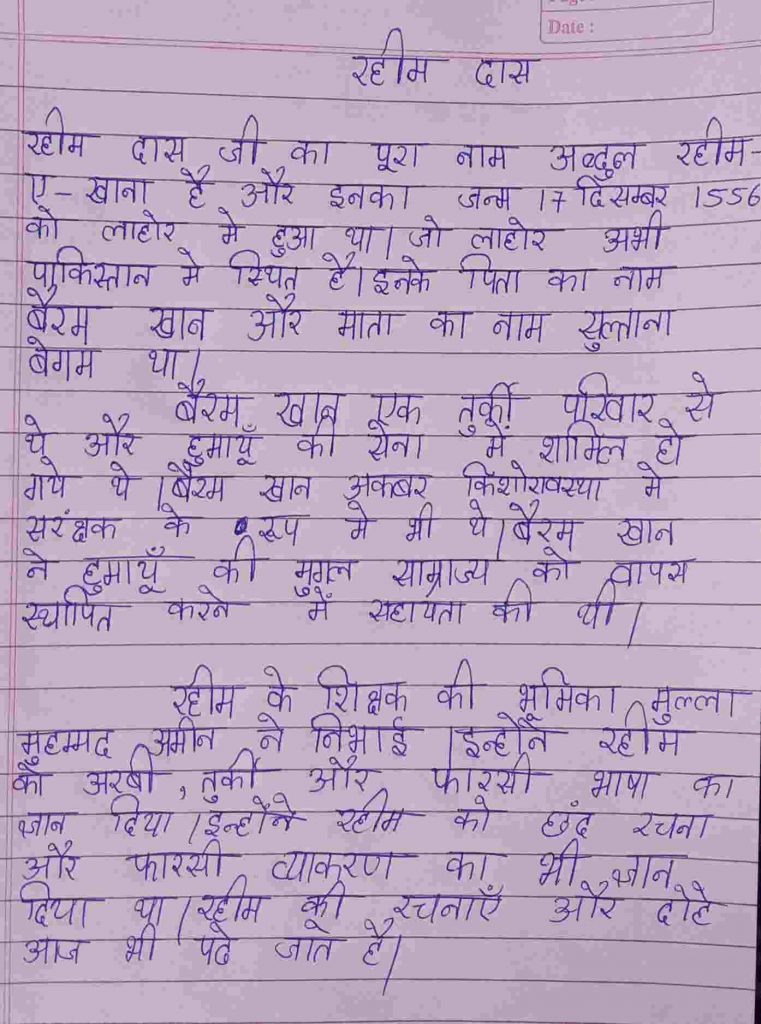 Date :
रहीम दास
रहीम दास जी का पूरा नाम अब्दुल रहीम-
ए-खाना है और इनका जन्म 17 दिसम्बर 1556
को लाहोर मे हुआ था। जो लाहोर अभी
पाकिस्तान मे स्थित है। इनके पिता का नाम
बैरम खान और माता का नाम सुल्ताना
बेगम था।
बैरम खान एक तुर्की परिवार से
थे और हुमायूँ की सेना में शामिल हो
गये थे। बैरम खान अकबर किशोरावस्था मे
सरंक्षक के रूप मे भी थे। बैरम खान
ने हुमायूँ की मुगल साम्राज्य को वापस
स्थापित करने में सहायता की थी।
रहीम के शिक्षक की भूमिका मुल्ला
मुहम्मद अमीन ने निभाई। इन्होंने रहीम
को अरबी, तुर्की और फारसी भाषा का
ज्ञान दिया। इन्होंने रहीम को छंद रचना
और फारसी व्याकरण का भी ज्ञान
दिया था। रहीम की रचनाएँ और दोहे
आज भी पढे जाते है।